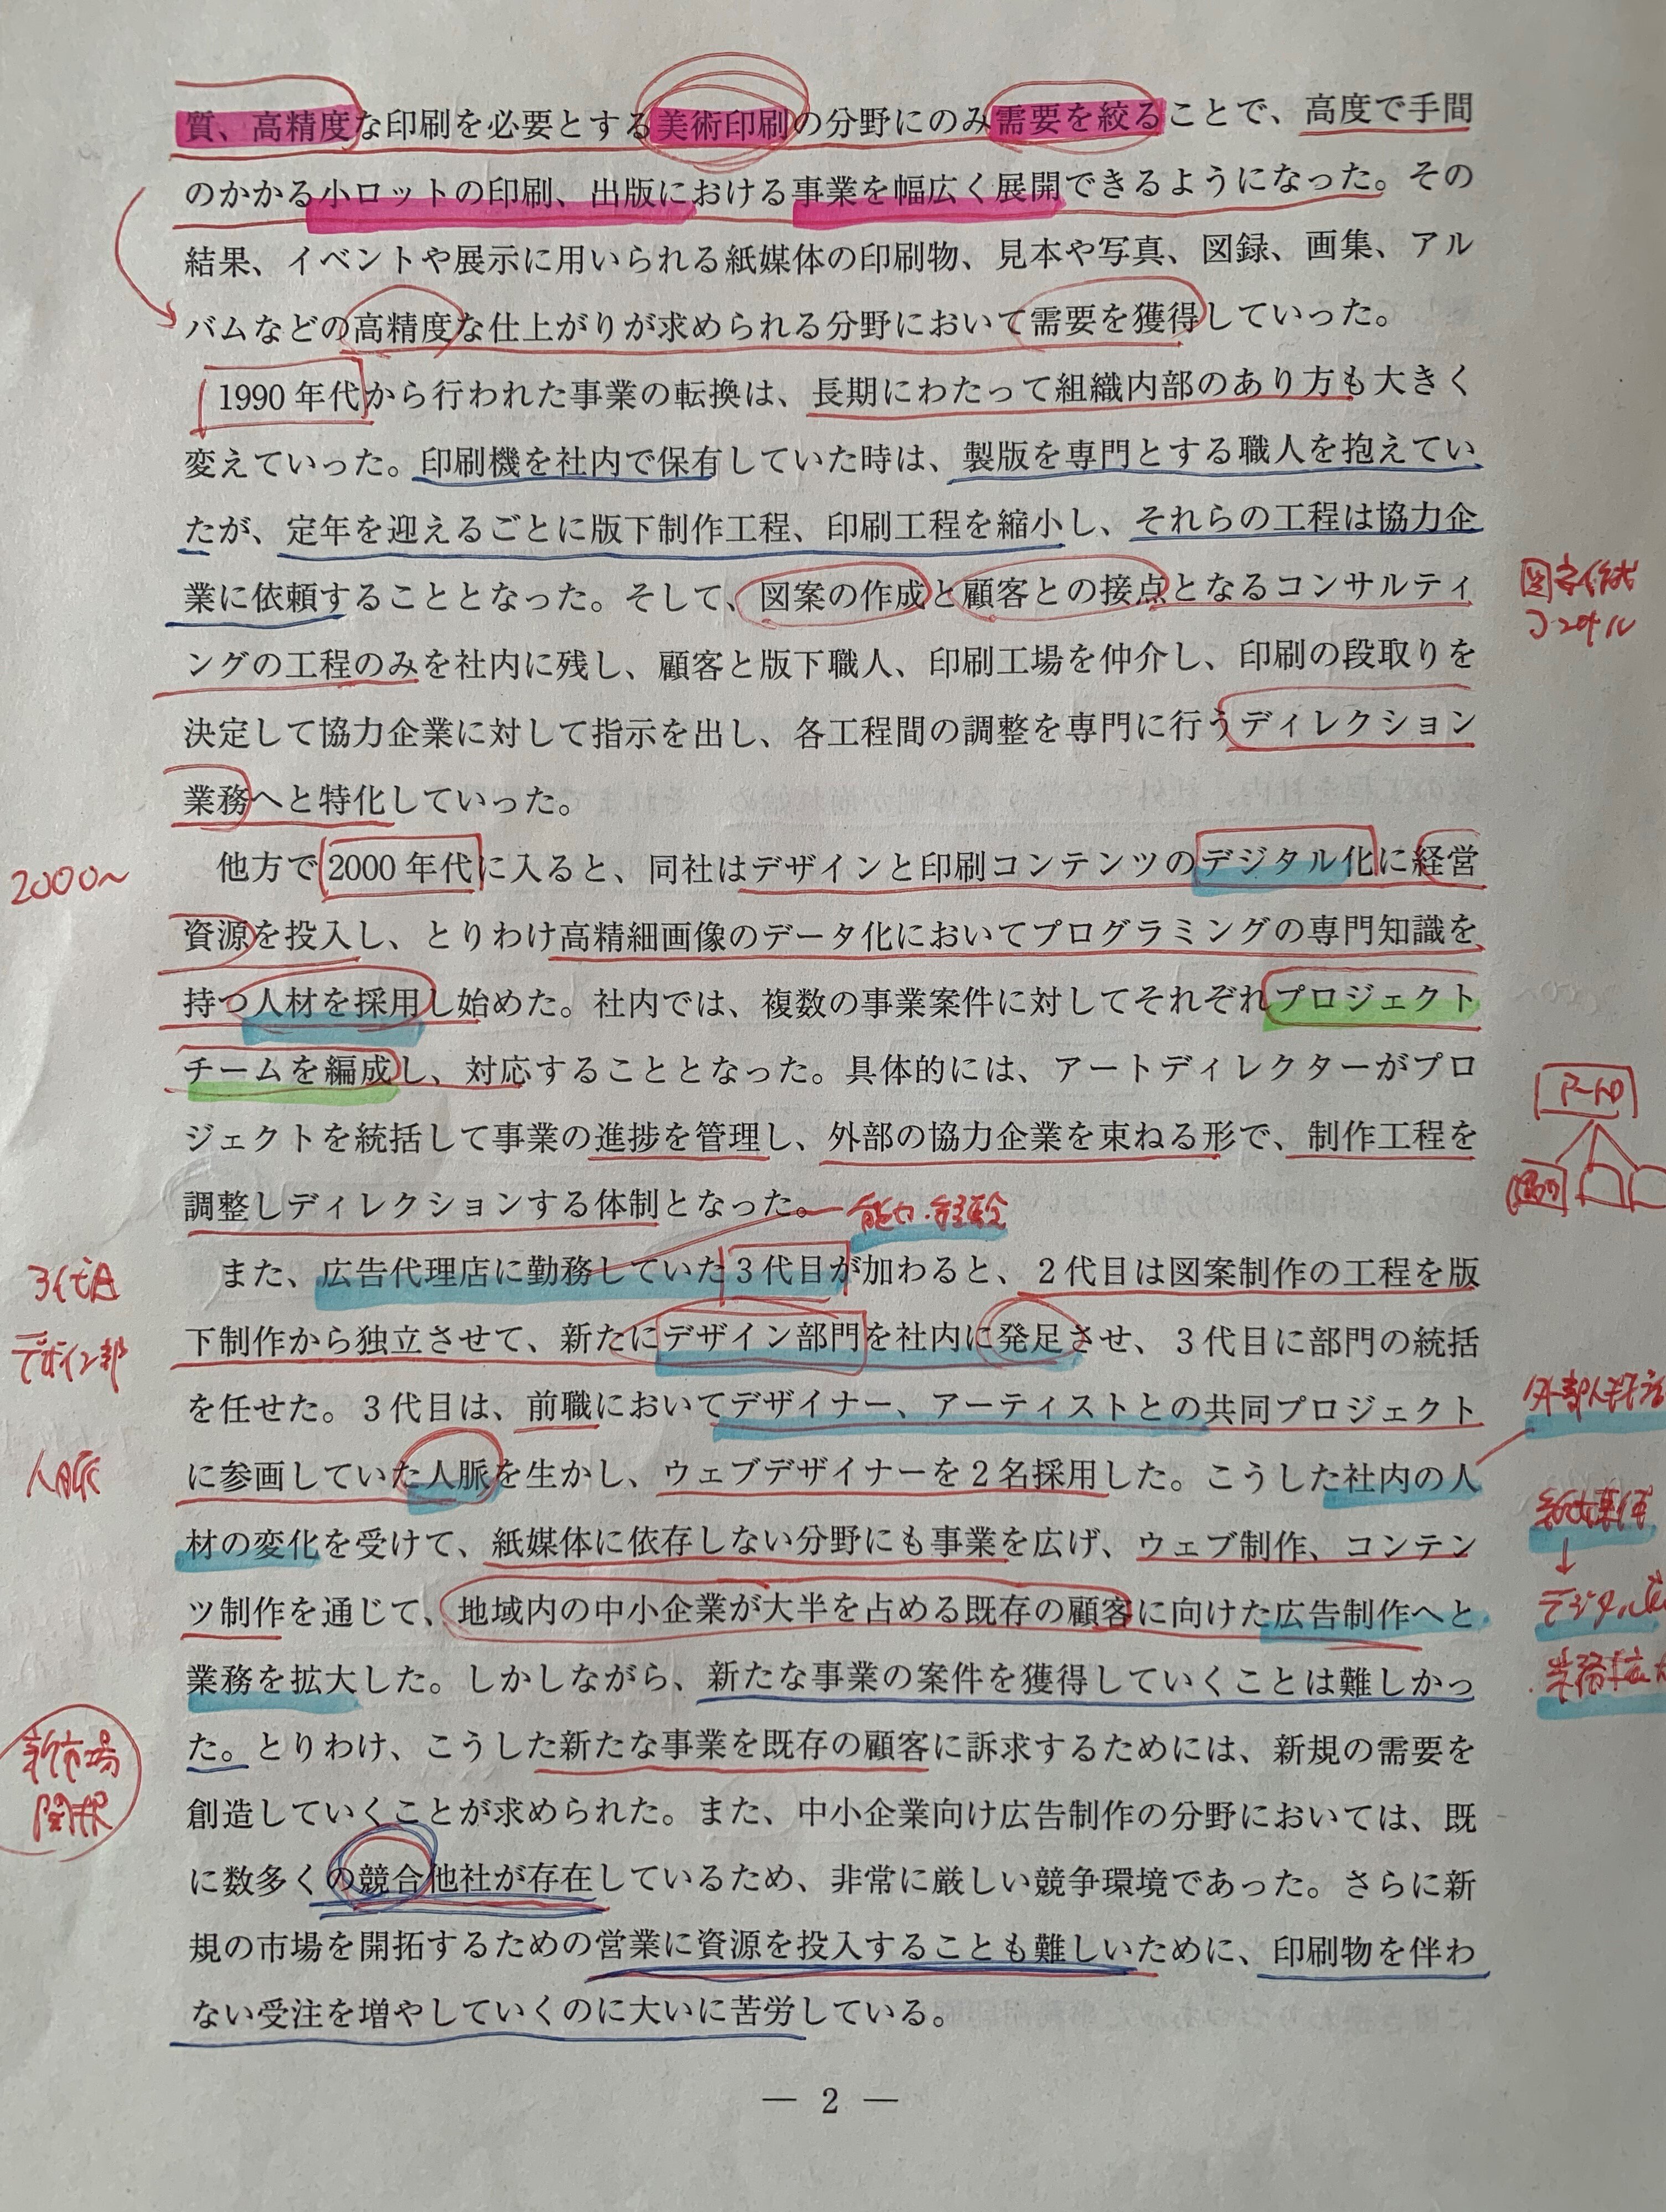 質、高精度な印刷を必要とする美術印刷の分野にのみ需要を絞ることで、高度で手間
のかかる小ロットの印刷、出版における事業を幅広く展開できるようになった。その
結果、イベントや展示に用いられる紙媒体の印刷物、見本や写真、図録、画集、アル
バムなどの高精度な仕上がりが求められる分野において需要を獲得していった。
1990 年代から行われた事業の転換は、長期にわたって組織内部のあり方も大きく
変えていった。印刷機を社内で保有していた時は、製版を専門とする職人を抱えてい
たが、定年を迎えるごとに版下制作工程、印刷工程を縮小し、それらの工程は協力企
業に依頼することとなった。そして、図案の作成と顧客との接点となるコンサルティ
図案作成
コンサル
ングの工程のみを社内に残し、顧客と版下職人、印刷工場を仲介し、印刷の段取りを
決定して協力企業に対して指示を出し、各工程間の調整を専門に行うディレクション
業務へと特化していった。
2000〜
他方で 2000 年代に入ると、同社はデザインと印刷コンテンツのデジタル化に経営
資源を投入し、とりわけ高精細画像のデータ化においてプログラミングの専門知識を
持つ人材を採用し始めた。社内では、複数の事業案件に対してそれぞれプロジェクト
チームを編成し、対応することとなった。具体的には、アートディレクターがプロ
アートD
ジェクトを統括して事業の進捗を管理し、外部の協力企業を束ねる形で、制作工程を
調整しディレクションする体制となった。
能力・経験
3代目
デザイン部
また、広告代理店に勤務していた３代目が加わると、２代目は図案制作の工程を版
下制作から独立させて、新たにデザイン部門を社内に発足させ、３代目に部門の統括
を任せた。３代目は、前職においてデザイナー、アーティストとの共同プロジェクト
人脈
に参画していた人脈を生かし、ウェブデザイナーを２名採用した。こうした社内の人
材の変化を受けて、紙媒体に依存しない分野にも事業を広げ、ウェブ制作、コンテン
紙媒体
↓
ツ制作を通じて、地域内の中小企業が大半を占める既存の顧客に向けた広告制作へと
業務を拡大した。しかしながら、新たな事業の案件を獲得していくことは難しかっ
業務拡大
新市場
開拓
た。とりわけ、こうした新たな事業を既存の顧客に訴求するためには、新規の需要を
創造していくことが求められた。また、中小企業向け広告制作の分野においては、既
に数多くの競合他社が存在しているため、非常に厳しい競争環境であった。さらに新
規の市場を開拓するための営業に資源を投入することも難しいために、印刷物を伴わ
ない受注を増やしていくのに大いに苦労している。
— 2 —